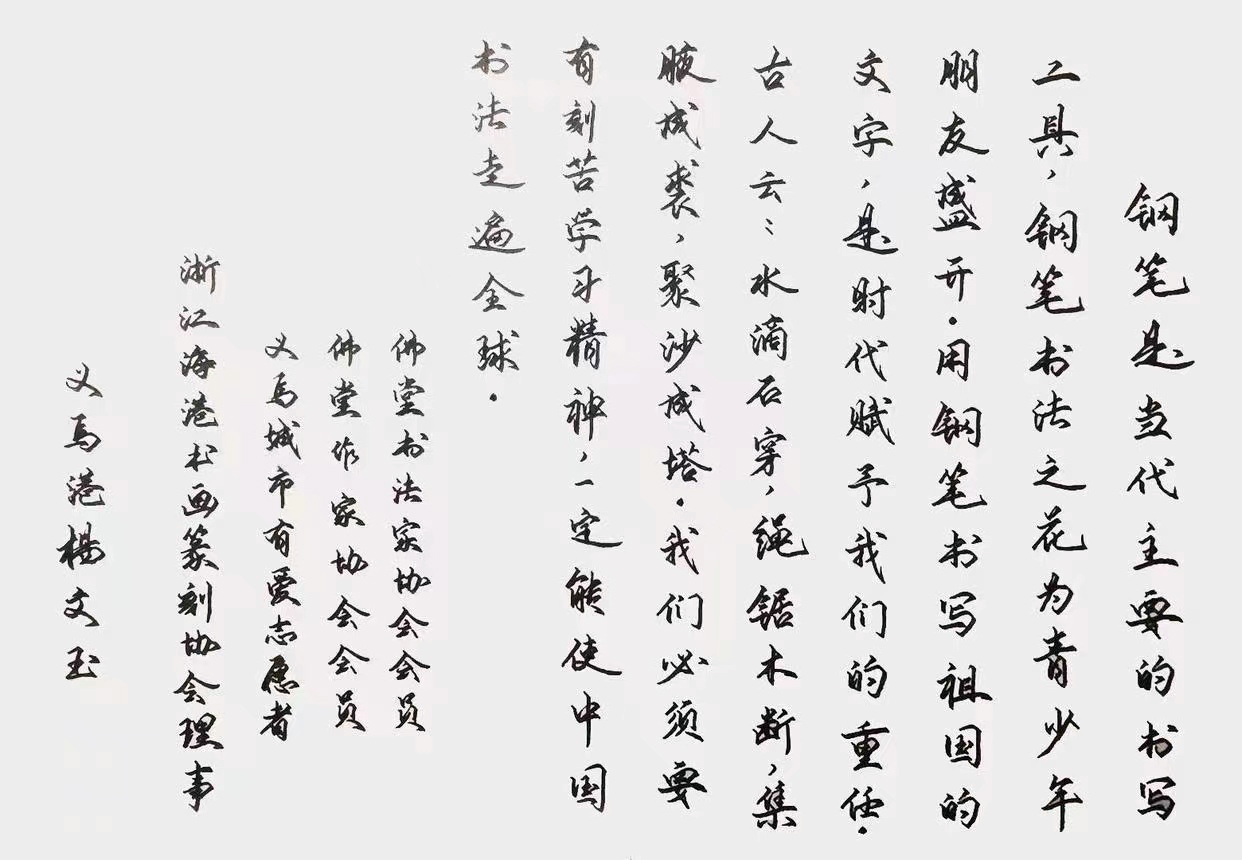 钢笔是当代主要的书写
工具，钢笔书法之花为青少年
朋友盛开．用钢笔书写祖国的
文字，是时代赋予我们的重任．
古人云：水滴石穿，绳锯木断，集
腋成裘，聚沙成塔．我们必须要
有刻苦学习精神，一定能使中国
书法走遍全球．
佛堂书法家协会会员
佛堂作家协会会员
义乌城市有爱志愿者
浙江海港书画篆刻协会理事
义乌港杨文玉